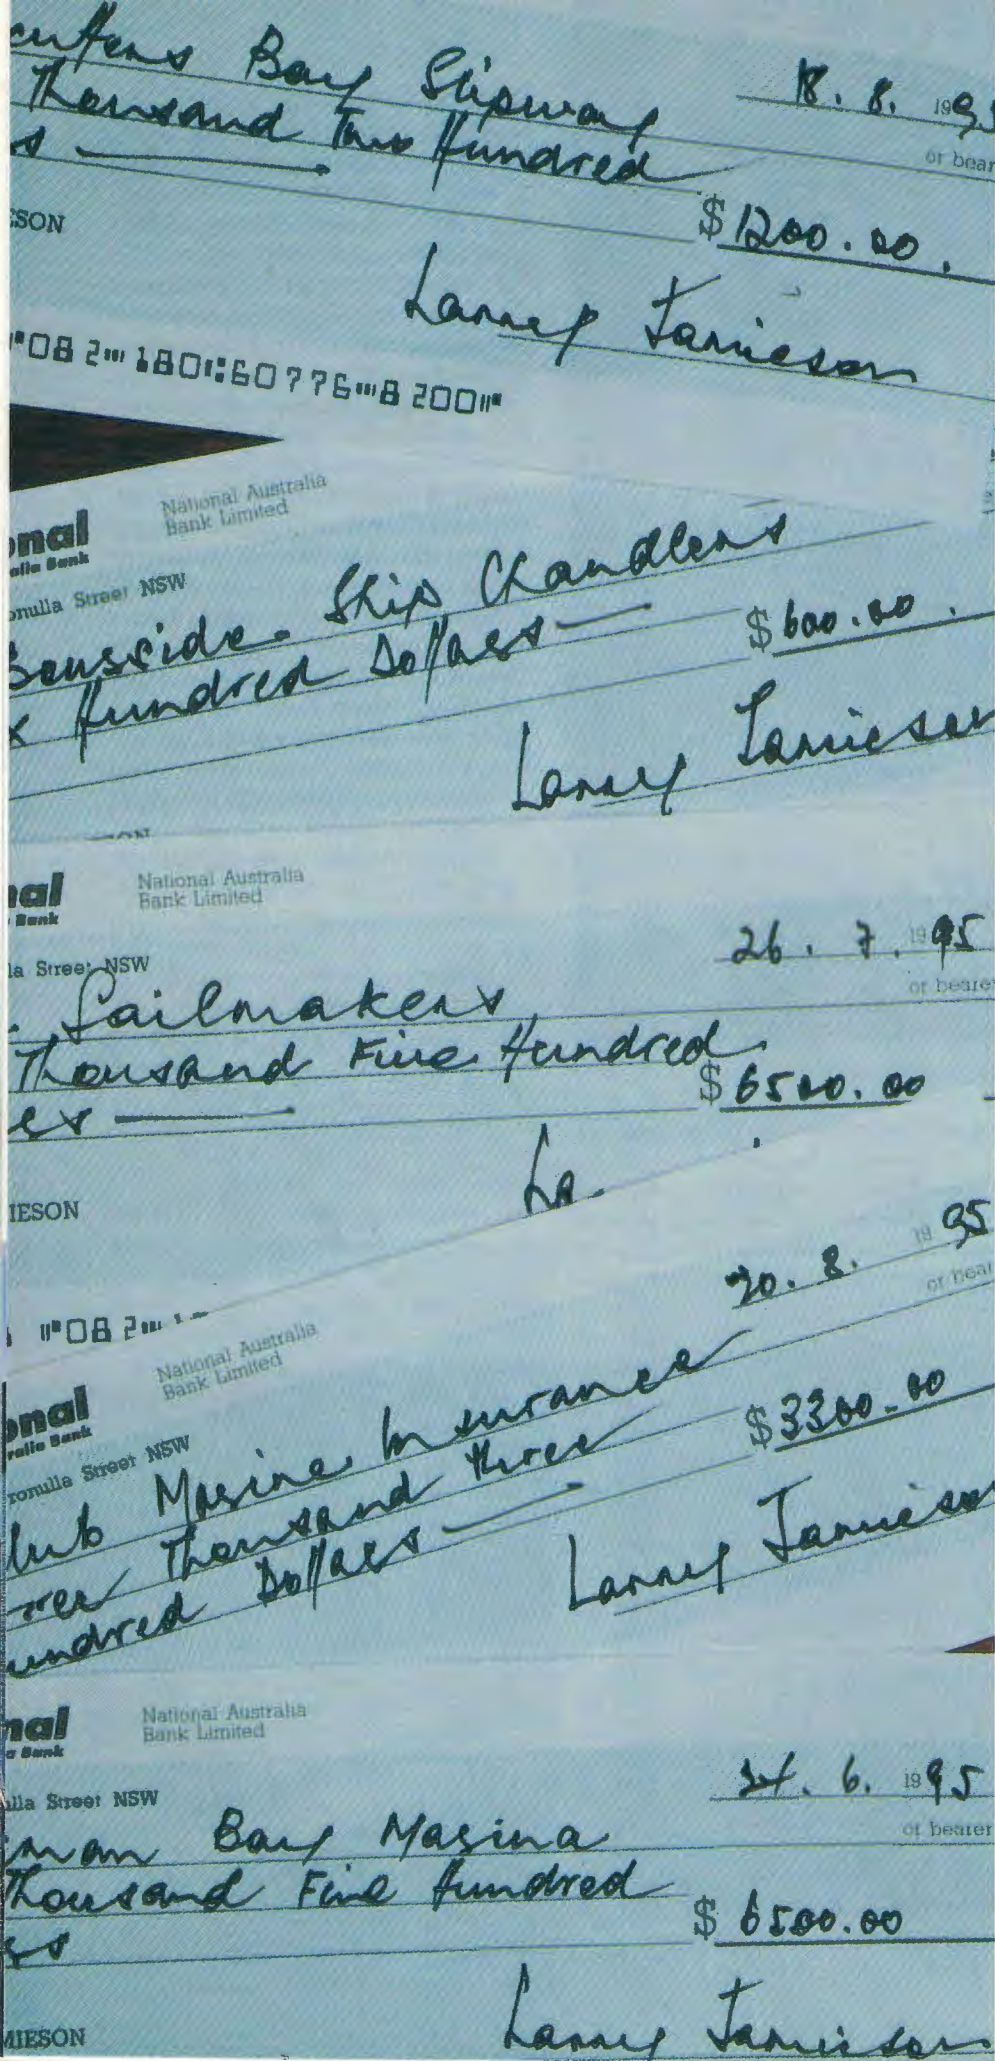 Bay Slipway
18. 8. 199
Thousand Two Hundred
or bear
$1200.00.
ESON
Larrey Jamieson
⑈082⑉180⑆60776⑉8200⑈
onal
alia Bank
National Australia
Bank Limited
onulla Street NSW
Ship Chandlers
Hundred Dollars
$600.00.
Larrey Jamieson
nal
Bank
National Australia
Bank Limited
la Street NSW
26. 7. 1995
or bearer
Sailmakers
Thousand Five Hundred
$6500.00
es
IESON
La
⑈082⑉
onal
ralia Bank
National Australia
Bank Limited
ronulla Street NSW
20. 8. 1995
or bear
lub Marine Insurance
Thousand three
undred Dollars
$3300.00
Larrey Jamieso
nal
a Bank
National Australia
Bank Limited
ulla Street NSW
6. 1995
or bearer
man Bay Marina
Thousand Five Hundred
$6500.00
MIESON
Larrey Jamieson